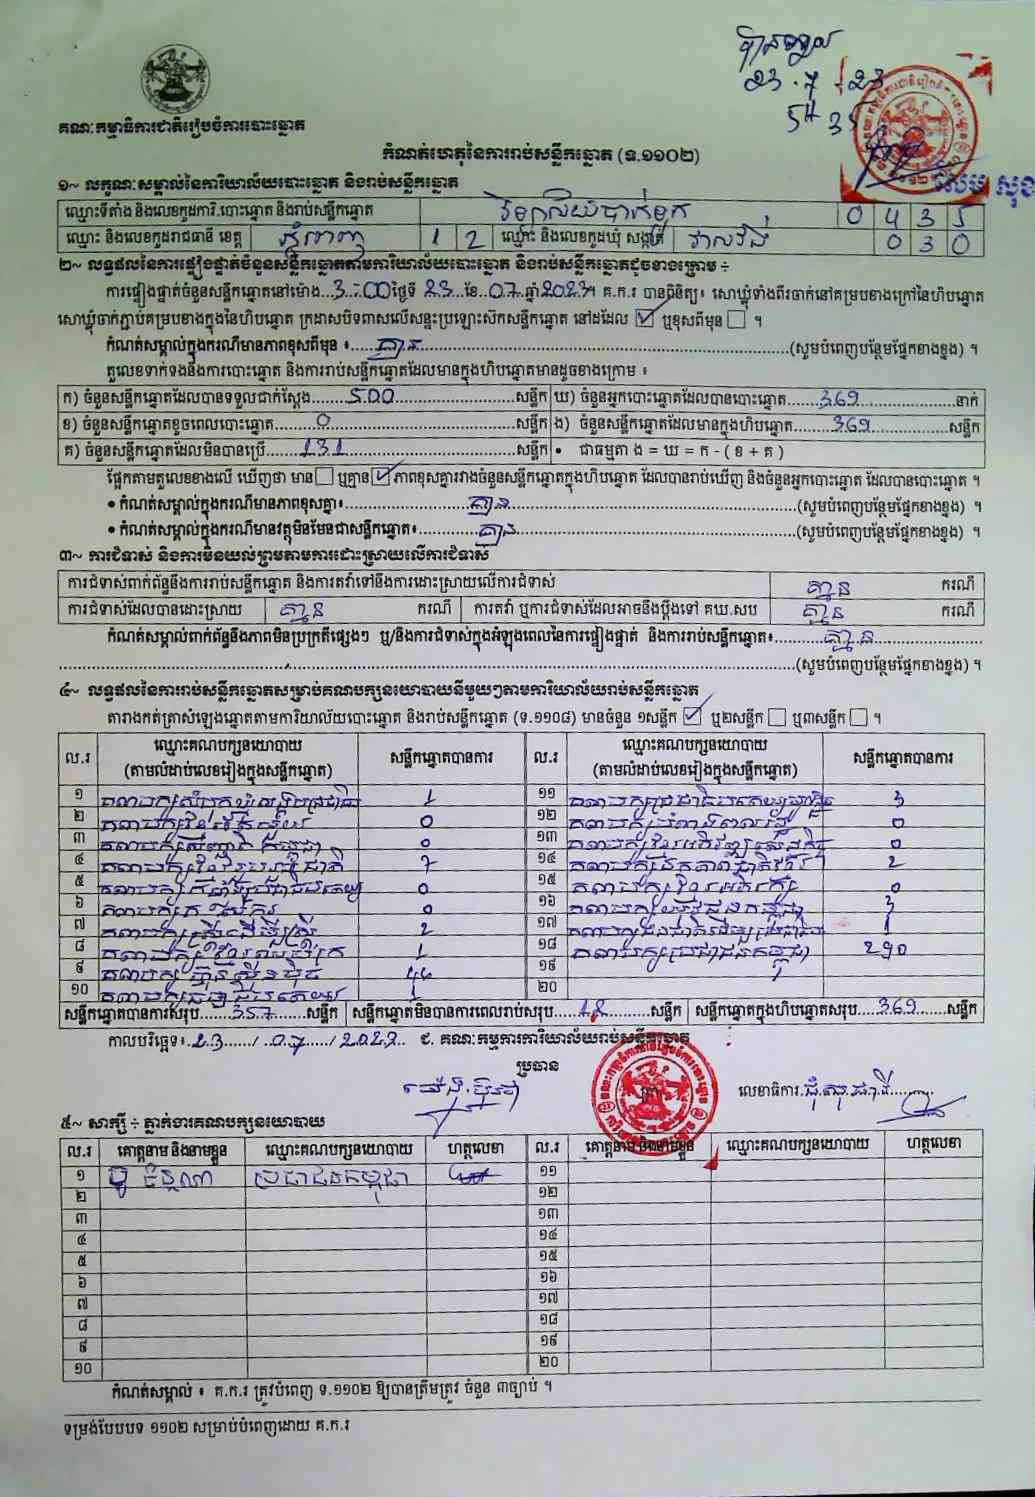 ប៉ានឃួល
23 . 7 . 23
5H 35
គណៈកម្មាធិការជាតិរៀបចំការបោះឆ្នោត
កំណត់ហេតុនៃការរាប់សន្លឹកឆ្នោត (ទ.១១០២)
១~ លក្ខណៈសម្គាល់នៃការិយាល័យបោះឆ្នោត និងរាប់សន្លឹកឆ្នោត
ឈ្មោះទីតាំង និងលេខកូដការិ.បោះឆ្នោត និងរាប់សន្លឹកឆ្នោត វិទ្យាល័យបាក់ទូក 0 4 3 5
ឈ្មោះ និងលេខកូដរាជធានី ខេត្ត ភ្នំពេញ 1 2 ឈ្មោះ និងលេខកូដឃុំ សង្កាត់ វាលវង់ 0 3 0
២~ លទ្ធផលនៃការផ្ទៀងផ្ទាត់ចំនួនសន្លឹកឆ្នោតតាមការិយាល័យបោះឆ្នោត និងរាប់សន្លឹកឆ្នោតដូចខាងក្រោម ÷
ការផ្ទៀងផ្ទាត់ចំនួនសន្លឹកឆ្នោតនៅម៉ោង...3:00ថ្ងៃទី 23 ខែ..07.ឆ្នាំ2023។ គ.ក.រ បានពិនិត្យ៖ សោឃ្លុំទាំងពីរចាក់នៅគម្របខាងក្រៅនៃហិបឆ្នោត
សោឃ្លុំចាក់ភ្ជាប់គម្របខាងក្នុងនៃហិបឆ្នោត ក្រដាសបិទពាសលើសន្ទះប្រឡោះសិកសន្លឹកឆ្នោត នៅដដែល ☑ ឬខុសពីមុន ☐ ។
កំណត់សម្គាល់ក្នុងករណីមានភាពខុសពីមុន ៖ គ្មាន (សូមបំពេញបន្ថែមផ្នែកខាងខ្នង) ។
តួលេខទាក់ទងនឹងការបោះឆ្នោត និងការរាប់សន្លឹកឆ្នោតដែលមានក្នុងហិបឆ្នោតមានដូចខាងក្រោម ៖
ក) ចំនួនសន្លឹកឆ្នោតដែលបានទទួលជាក់ស្តែង 500 សន្លឹក ឃ) ចំនួនអ្នកបោះឆ្នោតដែលបានបោះឆ្នោត 369 នាក់
ខ) ចំនួនសន្លឹកឆ្នោតខូចពេលបោះឆ្នោត 0 សន្លឹក ង) ចំនួនសន្លឹកឆ្នោតដែលមានក្នុងហិបឆ្នោត 369 សន្លឹក
គ) ចំនួនសន្លឹកឆ្នោតដែលមិនបានប្រើ 131 សន្លឹក • ជាធម្មតា ង = ឃ = ក - ( ខ + គ )
ផ្អែកតាមតួលេខខាងលើ ឃើញថា មាន ☐ ឬគ្មាន ☑ ភាពខុសគ្នារវាងចំនួនសន្លឹកឆ្នោតក្នុងហិបឆ្នោត ដែលបានរាប់ឃើញ និងចំនួនអ្នកបោះឆ្នោត ដែលបានបោះឆ្នោត ។
• កំណត់សម្គាល់ក្នុងករណីមានភាពខុសគ្នា៖ គ្មាន (សូមបំពេញបន្ថែមផ្នែកខាងខ្នង) ។
• កំណត់សម្គាល់ក្នុងករណីមានវត្ថុមិនមែនជាសន្លឹកឆ្នោត៖ គ្មាន (សូមបំពេញបន្ថែមផ្នែកខាងខ្នង) ។
៣~ ការជំទាស់ និងការមិនយល់ព្រមតាមការដោះស្រាយលើការជំទាស់
ការជំទាស់ពាក់ព័ន្ធនឹងការរាប់សន្លឹកឆ្នោត និងការតវ៉ាទៅនឹងការដោះស្រាយលើការជំទាស់ គ្មាន ករណី
ការជំទាស់ដែលបានដោះស្រាយ គ្មាន ករណី ការតវ៉ា ឬការជំទាស់ដែលអាចនឹងប្តឹងទៅ គឃ.សប គ្មាន ករណី
កំណត់សម្គាល់ពាក់ព័ន្ធនឹងភាពមិនប្រក្រតីផ្សេងៗ ឬ/និងការជំទាស់ក្នុងអំឡុងពេលនៃការផ្ទៀងផ្ទាត់ និងការរាប់សន្លឹកឆ្នោត៖ គ្មាន
(សូមបំពេញបន្ថែមផ្នែកខាងខ្នង) ។
៤~ លទ្ធផលនៃការរាប់សន្លឹកឆ្នោតសម្រាប់គណបក្សនយោបាយនីមួយៗតាមការិយាល័យរាប់សន្លឹកឆ្នោត
តារាងកត់ត្រាសំឡេងឆ្នោតតាមការិយាល័យបោះឆ្នោត និងរាប់សន្លឹកឆ្នោត (ទ.១១០៨) មានចំនួន ១សន្លឹក ☑ ឬ២សន្លឹក ☐ ឬ៣សន្លឹក ☐ ។
ល.រ ឈ្មោះគណបក្សនយោបាយ (តាមលំដាប់លេខរៀងក្នុងសន្លឹកឆ្នោត) សន្លឹកឆ្នោតបានការ ល.រ ឈ្មោះគណបក្សនយោបាយ (តាមលំដាប់លេខរៀងក្នុងសន្លឹកឆ្នោត) សន្លឹកឆ្នោតបានការ
១ គណបក្សសំបុកឃ្មុំសង្គមប្រជាធិបតេយ្យ 1 ១១ 3
២ 0 ១២ 0
៣ 0 ១៣ 0
៤ គណបក្សខ្មែររួបរួមជាតិ 7 ១៤ គណបក្សឯកភាពជាតិខ្មែរ 2
៥ 0 ១៥ គណបក្សខ្មែរអភិរក្ស 0
៦ គណបក្សកសិករ 0 ១៦ 3
៧ គណបក្សស្ត្រីដើម្បីស្ត្រី 2 ១៧ 1
៨ គណបក្សខ្មែរឈប់ក្រ 1 ១៨ គណបក្សប្រជាជនកម្ពុជា 290
៩ គណបក្សហ៊្វុនស៊ិនប៉ិច 44 ១៩
១០ 1 ២០
សន្លឹកឆ្នោតបានការសរុប 357 សន្លឹក សន្លឹកឆ្នោតមិនបានការពេលរាប់សរុប 12 សន្លឹក សន្លឹកឆ្នោតក្នុងហិបឆ្នោតសរុប 369 សន្លឹក
កាលបរិច្ឆេទ៖ 23 / 07 / 2023 ជ. គណៈកម្មការការិយាល័យរាប់សន្លឹកឆ្នោត
ប្រធាន
លេខាធិការ
៥~ សាក្សី ÷ ភ្នាក់ងារគណបក្សនយោបាយ
ល.រ គោត្តនាម និងនាមខ្លួន ឈ្មោះគណបក្សនយោបាយ ហត្ថលេខា ល.រ គោត្តនាម និងនាមខ្លួន ឈ្មោះគណបក្សនយោបាយ ហត្ថលេខា
១ ប្រជាជនកម្ពុជា ១១
២ ១២
៣ ១៣
៤ ១៤
៥ ១៥
៦ ១៦
៧ ១៧
៨ ១៨
៩ ១៩
១០ ២០
កំណត់សម្គាល់ ៖ គ.ក.រ ត្រូវបំពេញ ទ.១១០២ ឱ្យបានត្រឹមត្រូវ ចំនួន ៣ច្បាប់ ។
ទម្រង់បែបបទ ១១០២ សម្រាប់បំពេញដោយ គ.ក.រ